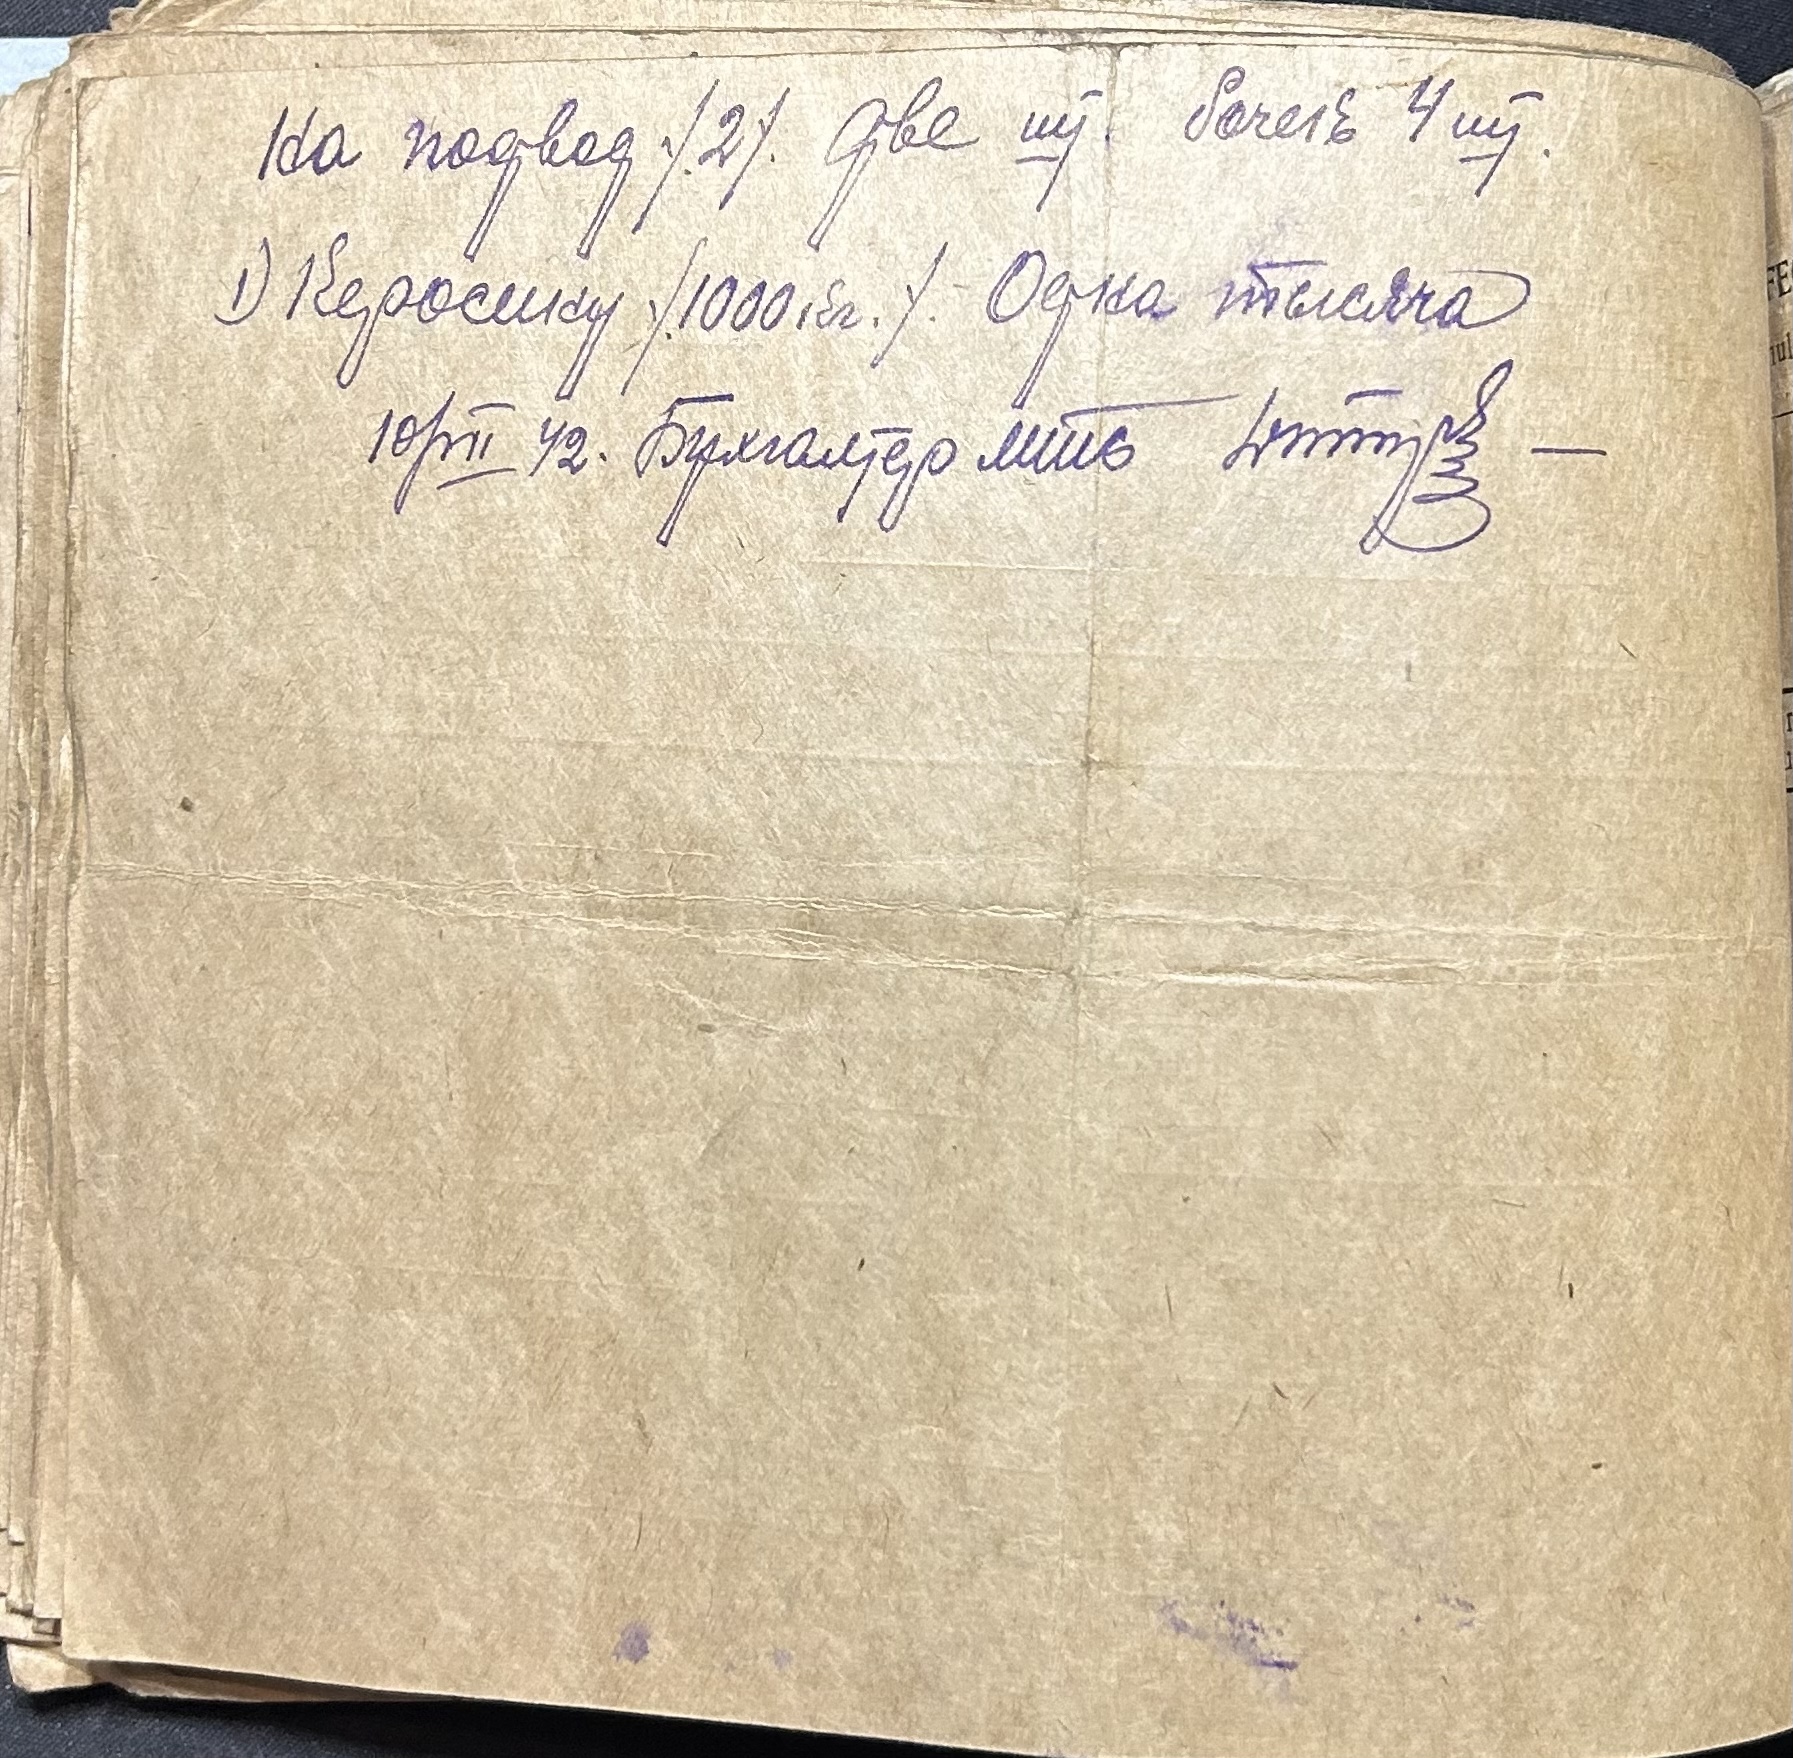 На подвод /2/. две шт. бочек 4 шт.
1) Керосину /1000 кг./. Одна тысяча
10/VII 42. Бухгалтер МТС